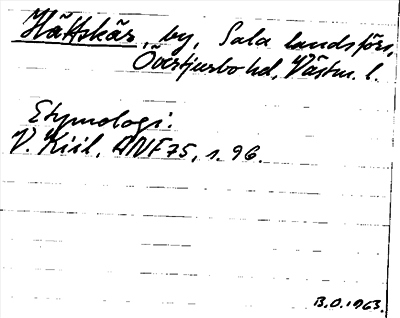 Hättskär, by, Sala landsförs.,
Övertjurbo hd, Västm. l.
Etymologi:
V. Kiil, ANF 75, s. 96.
B.O. 1963.